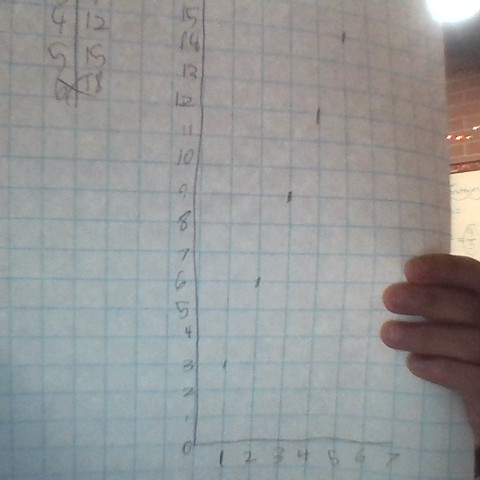 4 12
5 15
18
15
14
13
12
11
10
9
8
7
6
5
4
3
2
1
0
1 2 3 4 5 6 7